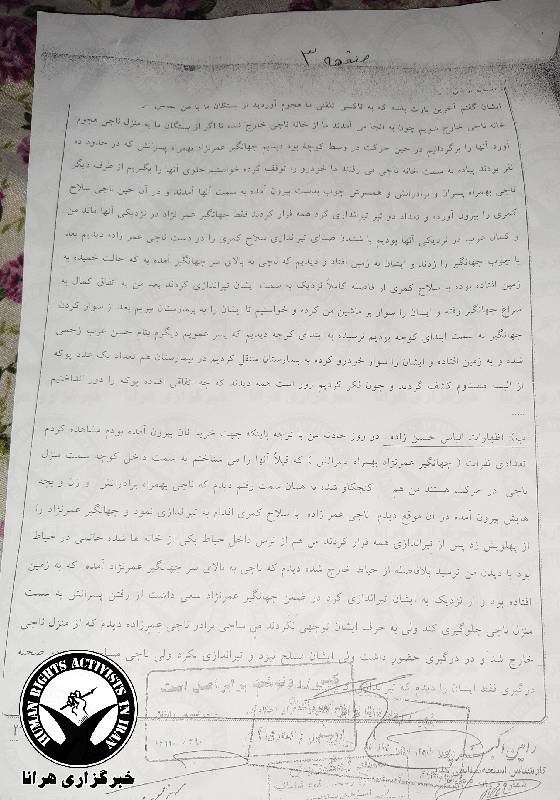 صفحه ۳
ایشان گفتم آخرین مارت بسه که به تاکسی تلفنی ما هجوم آوردید از بستگان ما با من تماس
خانه ناجی خارج شویم چون به آنجا می آمدند ما از خانه ناجی خارج شده تا اگر از بستگان ما به منزل ناجی هجوم
آورد آنها را برگردانیم در حین حرکت در وسط کوچه بود دیدیم جهانگیر عمرنژاد بهمراه پسرانش که در حدود ده
نفر بودند پیاده به سمت خانه ناجی می رفتند ما خودرو را توقف کرده خواستیم جلوی آنها را بگیریم از طرف دیگر
ناجی بهمراه پسران و برادرانش و همسرش چوب بدست بیرون آمده به سمت آنها آمدند و در آن حین ناجی سلاح
کمری را بیرون آورده و تعداد دو تیر تیراندازی کرد همه فرار کردند فقط جهانگیر عمر نژاد در نزدیکی آنها ماند من
و کمال عرب در نزدیکی آنها بودیم با شنیدن صدای تیراندازی سلاح کمری را در دست ناجی عمر زاده دیدیم بعد
با چوب جهانگیر را زدند و ایشان به زمین افتاد و دیدیم که ناجی به بالای سر جهانگیر آمده به که حالت خمیده به
زمین افتاده بود به سلاح کمری از فاصله کاملاً نزدیک به سمت ایشان تیراندازی کردند بعد من به اتفاق کمال به
سراغ جهانگیر رفته و ایشان را سوار بر ماشین من کرده و خواستیم تا ایشان را به بیمارستان ببریم بعد از سوار کردن
جهانگیر به سمت ابتدای کوچه بودیم نرسیده به ابتدای کوچه دیدیم که پسر عمویم دیگرم بنام حسن عرب زخمی
شده و به زمین افتاده و ایشان را سوار خودرو کرده به بیمارستان منتقل کردیم در بیمارستان هم تعداد یک عدد پوکه
از البسه مصدوم کشف گردید و چون فکر کردیم زور است همه دیدند که چه اتفاقی افتاده پوکه را دور انداختیم
.....
اظهارات الیاس حسین زاده در روز حادثه من با توجه باینکه جهت خرید نان بیرون آمده بودم مشاهده کردم
تعدادی نفرات ( جهانگیر عمرنژاد بهمراه پسرانش ) که قبلاً آنها را می شناختم به سمت داخل کوچه سمت منزل
ناجی در حرکت هستند من هم کنجکاو شده به همان سمت رفتم دیدم که ناجی بهمراه برادرانش و زن و بچه
هایش بیرون آمده در آن موقع دیدم ناجی عمر زاده با سلاح کمری اقدام به تیراندازی نمود و جهانگیر عمرنژاد را
از پهلویش زد پس از تیراندازی همه فرار کردند من هم از ترس داخل حیاط یکی از خانه ها شده خانمی در حیاط
بود با دیدن من ترسید بلافاصله از حیاط خارج شده دیدم که ناجی به بالای سر جهانگیر عمرنژاد آمده که به زمین
افتاده بود و از نزدیک به ایشان تیراندازی کرد در ضمن جهانگیر عمرنژاد سعی داشت از رفتن پسرانش به سمت
منزل ناجی جلوگیری کند ولی به حرف ایشان توجهی نکردند من مناجی برادر ناجی عمرزاده دیدم که از منزل ناجی
خارج شد و در درگیری حضور داشت ولی ایشان مسلح نبود و تیراندازی نکرد ولی ناجی صحنه
درگیری فقط ایشان را دیدم که
HUMAN RIGHTS ACTIVISTS IN IRAN
خبرگزاری هرانا